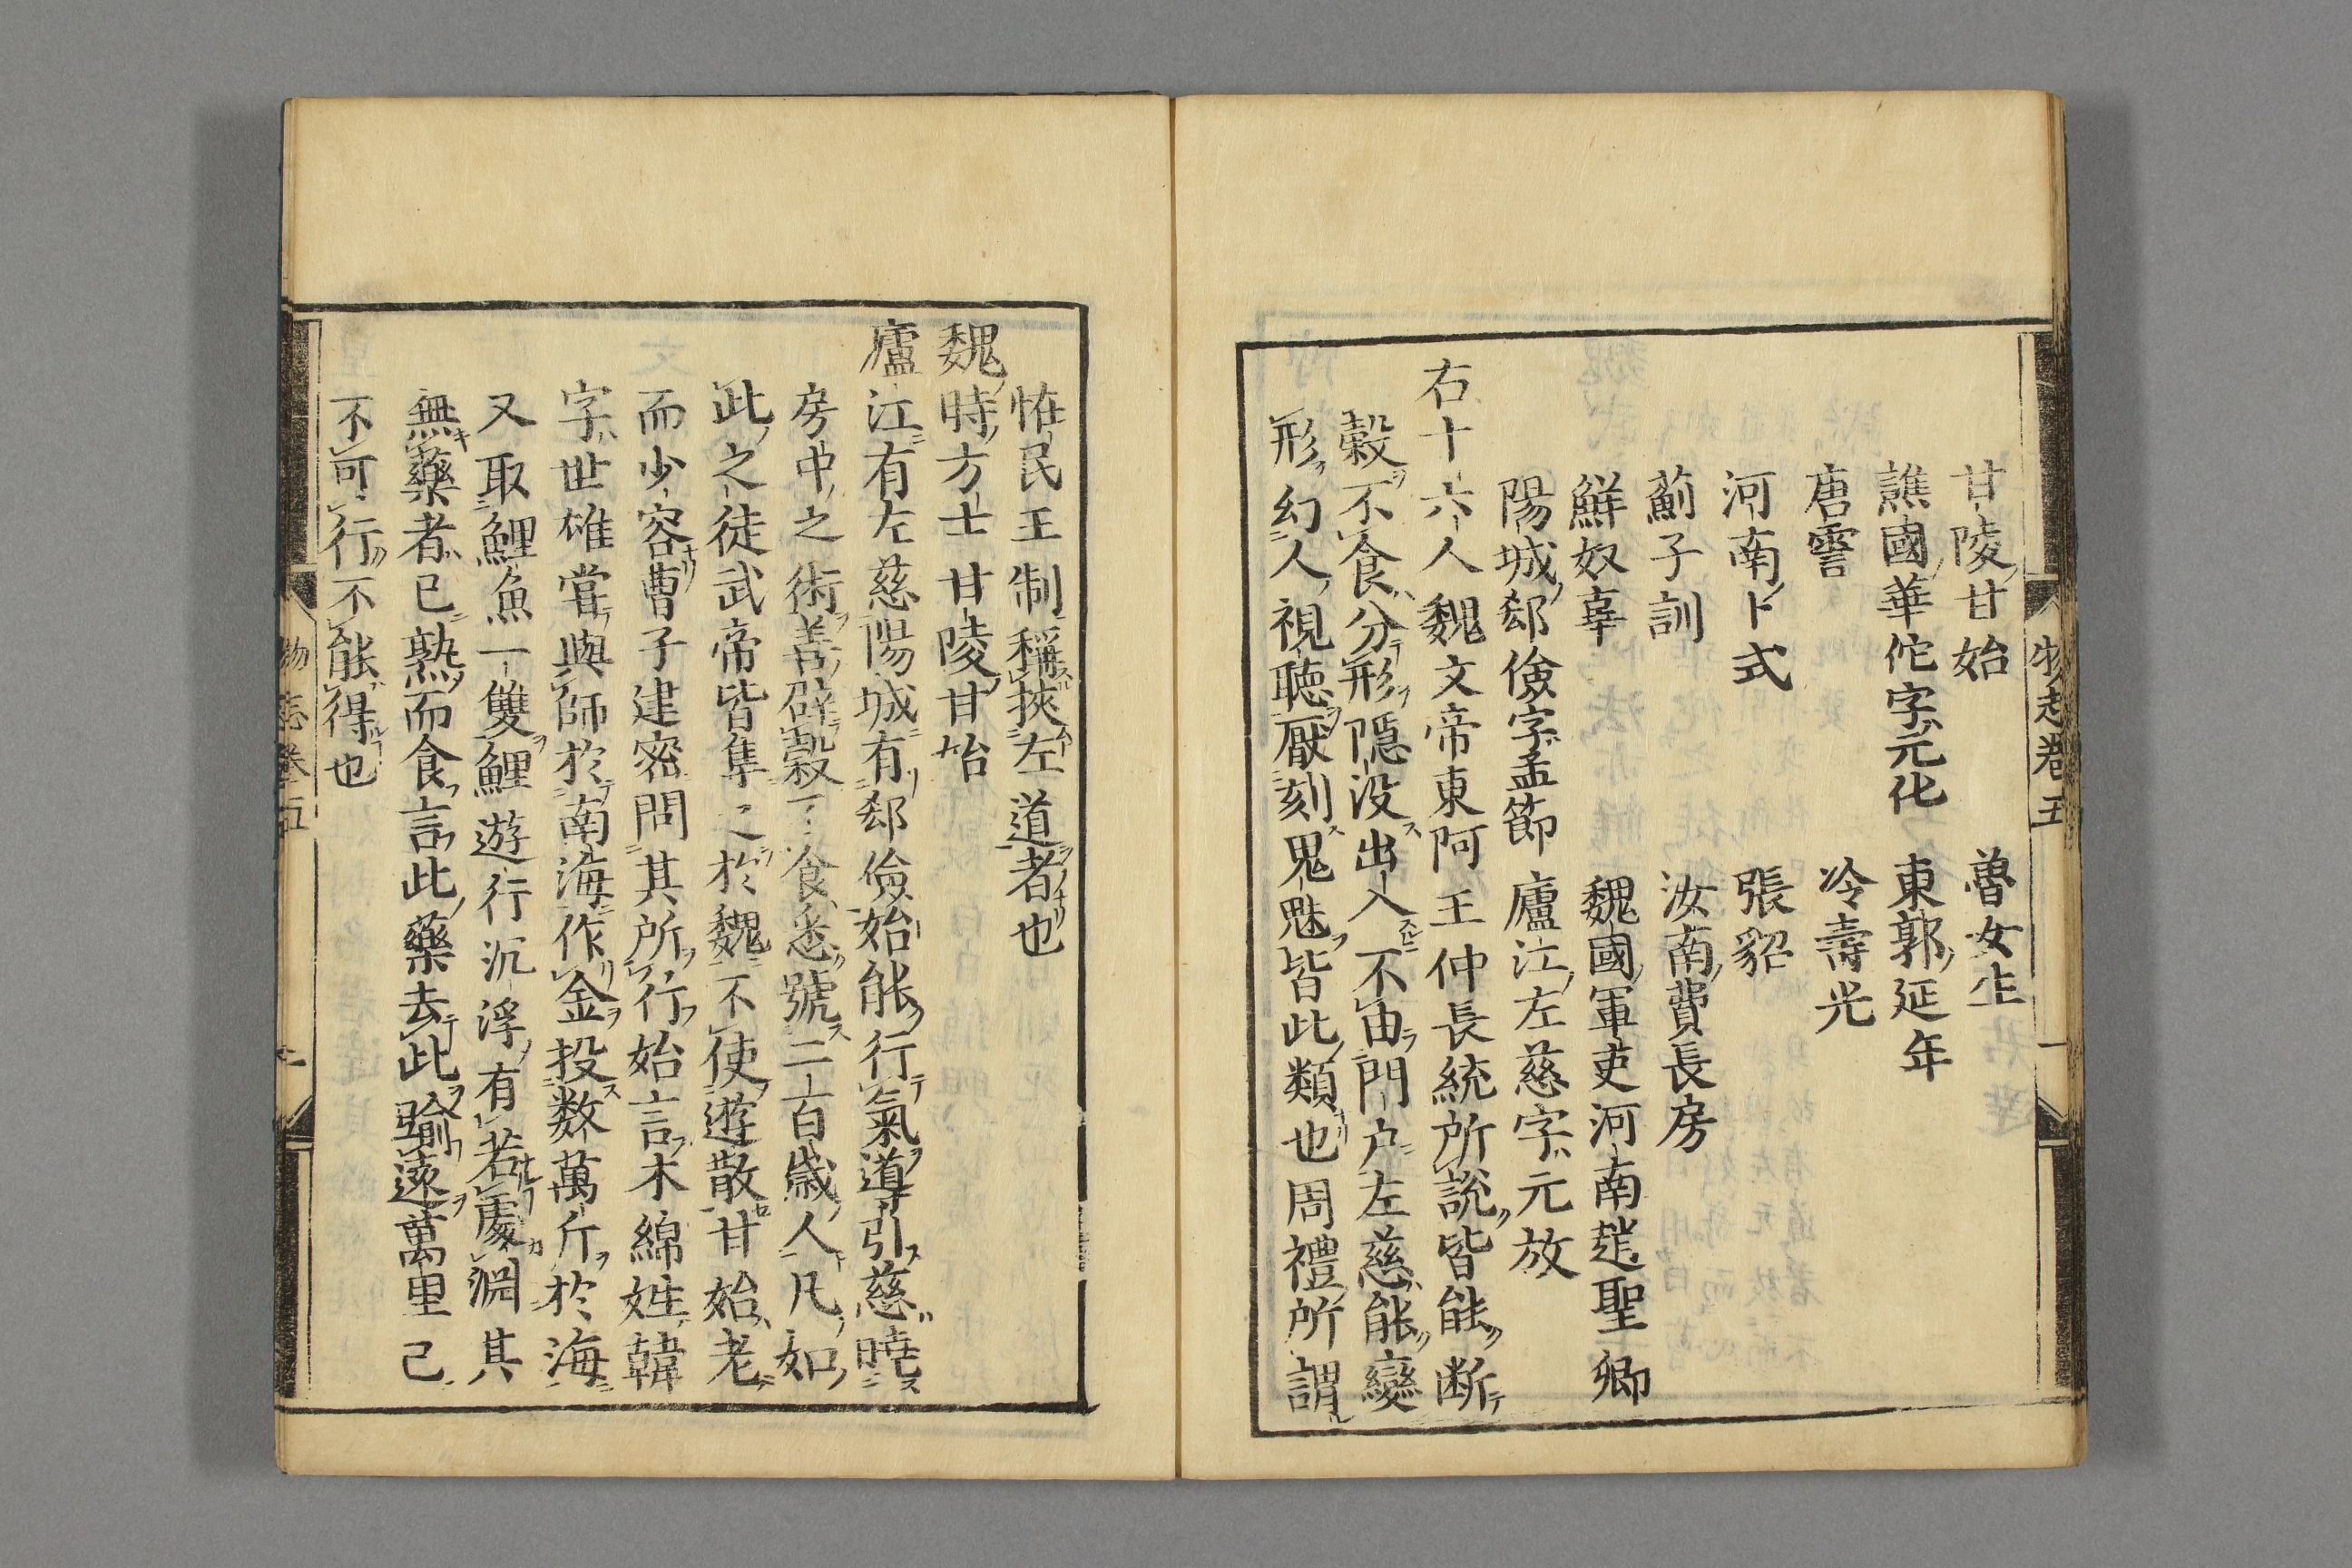 甘陵甘始　魯女生
譙國華佗字元化　東郭延年
唐霅　冷壽光
河南卜式　張貂
薊子訓　汝南費長房
鮮奴辜　魏國軍吏河南趙聖卿
陽城郄儉字孟節　廬江左慈字元放
右十六人魏文帝東阿王仲長統所說皆能断
穀不食分形隱没出入不由門户左慈能變
形幻人視聴厭刻鬼魅皆此類也周禮所謂
恠民王制稱挾左道者也
魏時方士甘陵甘始
廬江有左慈陽城有郄儉始能行氣導引慈曉
房中之術善辟穀不食悉號二百歲人凡如
此之徒武帝皆集之於魏不使遊散甘始老
而少容曹子建密問其所行始言本師姓韓
字世雄嘗與師於南海作金投数萬斤於海
又取鯉魚一雙鯉遊行沉浮有若處淵其
無藥者已熟而食言此藥去此踰遠萬里已
不可行不能得也
物志卷五
物志卷五